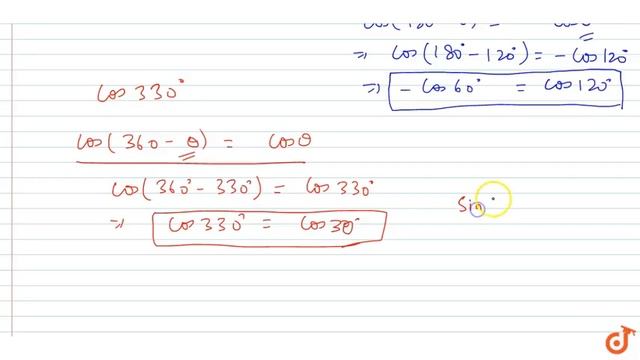 ⇒ cos(180°-120°) = -cos120°
⇒ -cos60° = cos120°
cos330°
cos(360-θ) = cosθ
cos(360°-330°) = cos330°
⇒ cos330° = cos30°
Sin